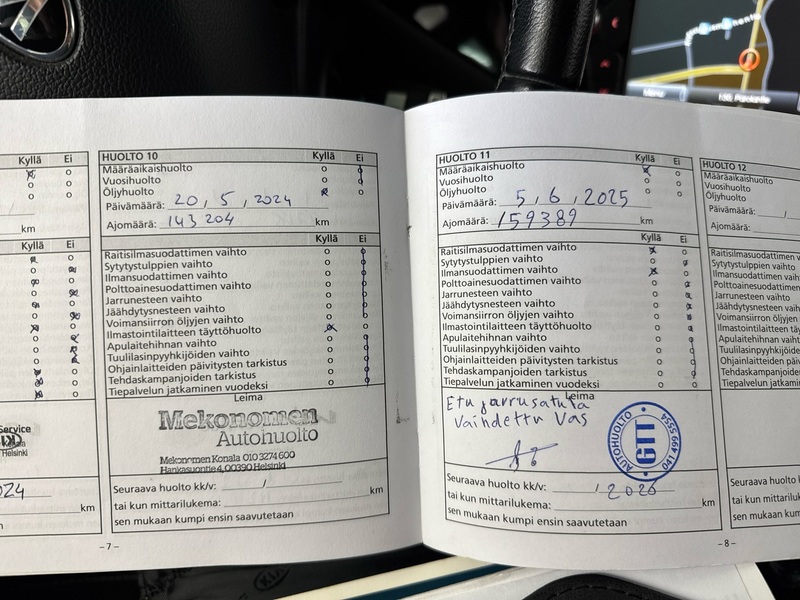 Kyllä Ei
km
Kyllä Ei
Service
Helsinki
024
km
HUOLTO 10 Kyllä Ei
Määräaikaishuolto
Vuosihuolto
Öljyhuolto
Päivämäärä: 20, 5, 2024
Ajomäärä: 143 204 km
Kyllä Ei
Raitisilmasuodattimen vaihto
Sytytystulppien vaihto
Ilmansuodattimen vaihto
Polttoainesuodattimen vaihto
Jarrunesteen vaihto
Jäähdytysnesteen vaihto
Voimansiirron öljyjen vaihto
Ilmastointilaitteen täyttöhuolto
Apulaitehihnan vaihto
Tuulilasinpyyhkijöiden vaihto
Ohjainlaitteiden päivitysten tarkistus
Tehdaskampanjoiden tarkistus
Tiepalvelun jatkaminen vuodeksi
Leima
Mekonomen
Autohuolto
Mekonomen Konala 010 3274 600
Hankasuontie 4, 00390 Helsinki
Seuraava huolto kk/v: /
tai kun mittarilukema: km
sen mukaan kumpi ensin saavutetaan
-7-
HUOLTO 11 Kyllä Ei
Määräaikaishuolto
Vuosihuolto
Öljyhuolto
Päivämäärä: 5, 6, 2025
Ajomäärä: 159389 km
Kyllä Ei
Raitisilmasuodattimen vaihto
Sytytystulppien vaihto
Ilmansuodattimen vaihto
Polttoainesuodattimen vaihto
Jarrunesteen vaihto
Jäähdytysnesteen vaihto
Voimansiirron öljyjen vaihto
Ilmastointilaitteen täyttöhuolto
Apulaitehihnan vaihto
Tuulilasinpyyhkijöiden vaihto
Ohjainlaitteiden päivitysten tarkistus
Tehdaskampanjoiden tarkistus
Tiepalvelun jatkaminen vuodeksi
Leima
Etu jarrusatula
Vaihdettu Vas
AUTOHUOLTO
GTT
041 499 5554
Seuraava huolto kk/v: / 2026
tai kun mittarilukema: km
sen mukaan kumpi ensin saavutetaan
-8-
HUOLTO 12
Määräaikaishuolto
Vuosihuolto
Öljyhuolto
Päivämäärä:
Ajomäärä:
Raitisilmasuodattimen
Sytytystulppien vaihto
Ilmansuodattimen vaih
Polttoainesuodattimen
Jarrunesteen vaihto
Jäähdytysnesteen vaihto
Voimansiirron öljyjen
Ilmastointilaitteen täy
Apulaitehihnan vaihto
Tuulilasinpyyhkijöiden
Ohjainlaitteiden päivi
Tehdaskampanjoiden
Tiepalvelun jatkaminen
Seuraava huolto kk/v:
tai kun mittarilukema:
sen mukaan kumpi